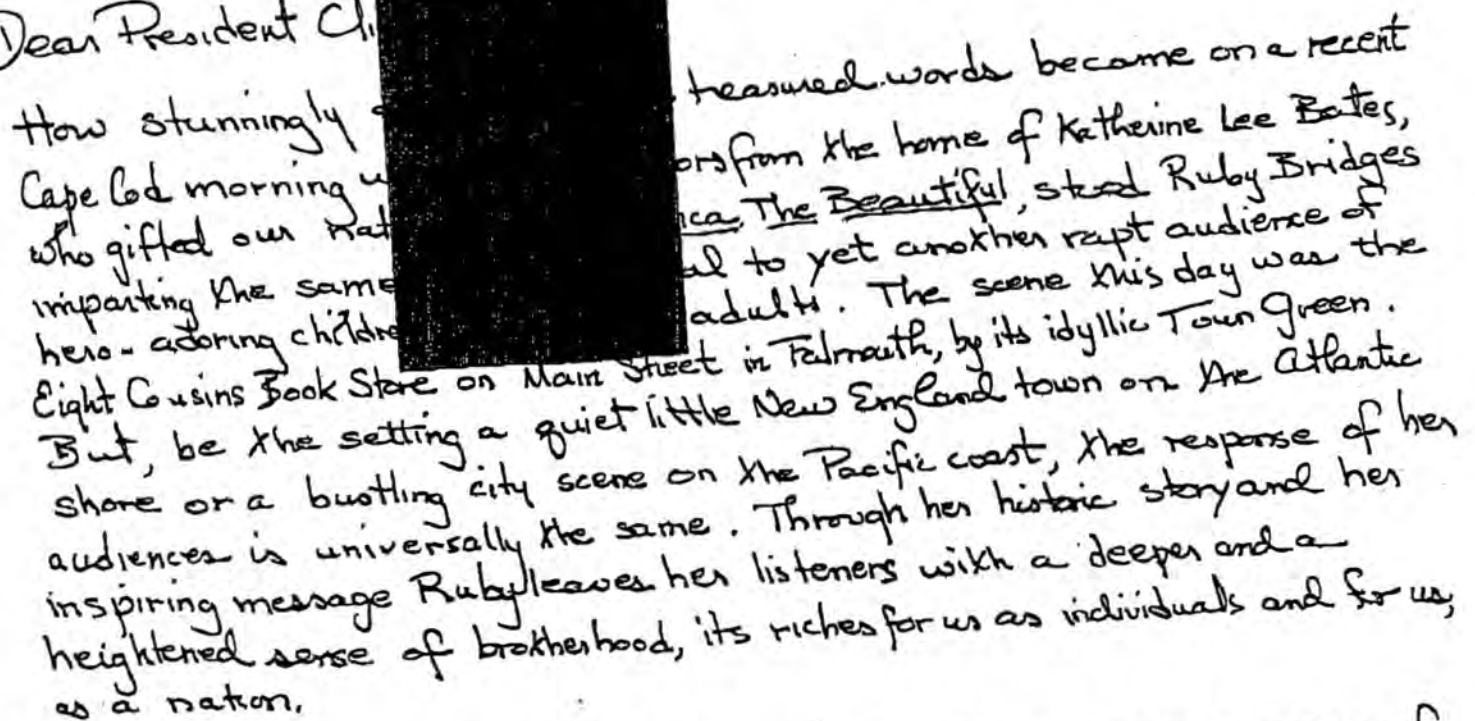 Dear President Cli
How stunningly treasured words became on a recent
Cape Cod morning w ors from the home of Katherine Lee Bates,
who gifted our nat ica, The Beautiful, stood Ruby Bridges
imparting the same al to yet another rapt audience of
hero-adoring childre adults. The scene this day was the
Eight Cousins Book Store on Main Street in Falmouth, by its idyllic Town Green.
But, be the setting a quiet little New England town on the Atlantic
shore or a bustling city scene on the Pacific coast, the response of her
audiences is universally the same. Through her historic story and her
inspiring message Ruby leaves her listeners with a deeper and a
heightened sense of brotherhood, its riches for us as individuals and for us,
as a nation.